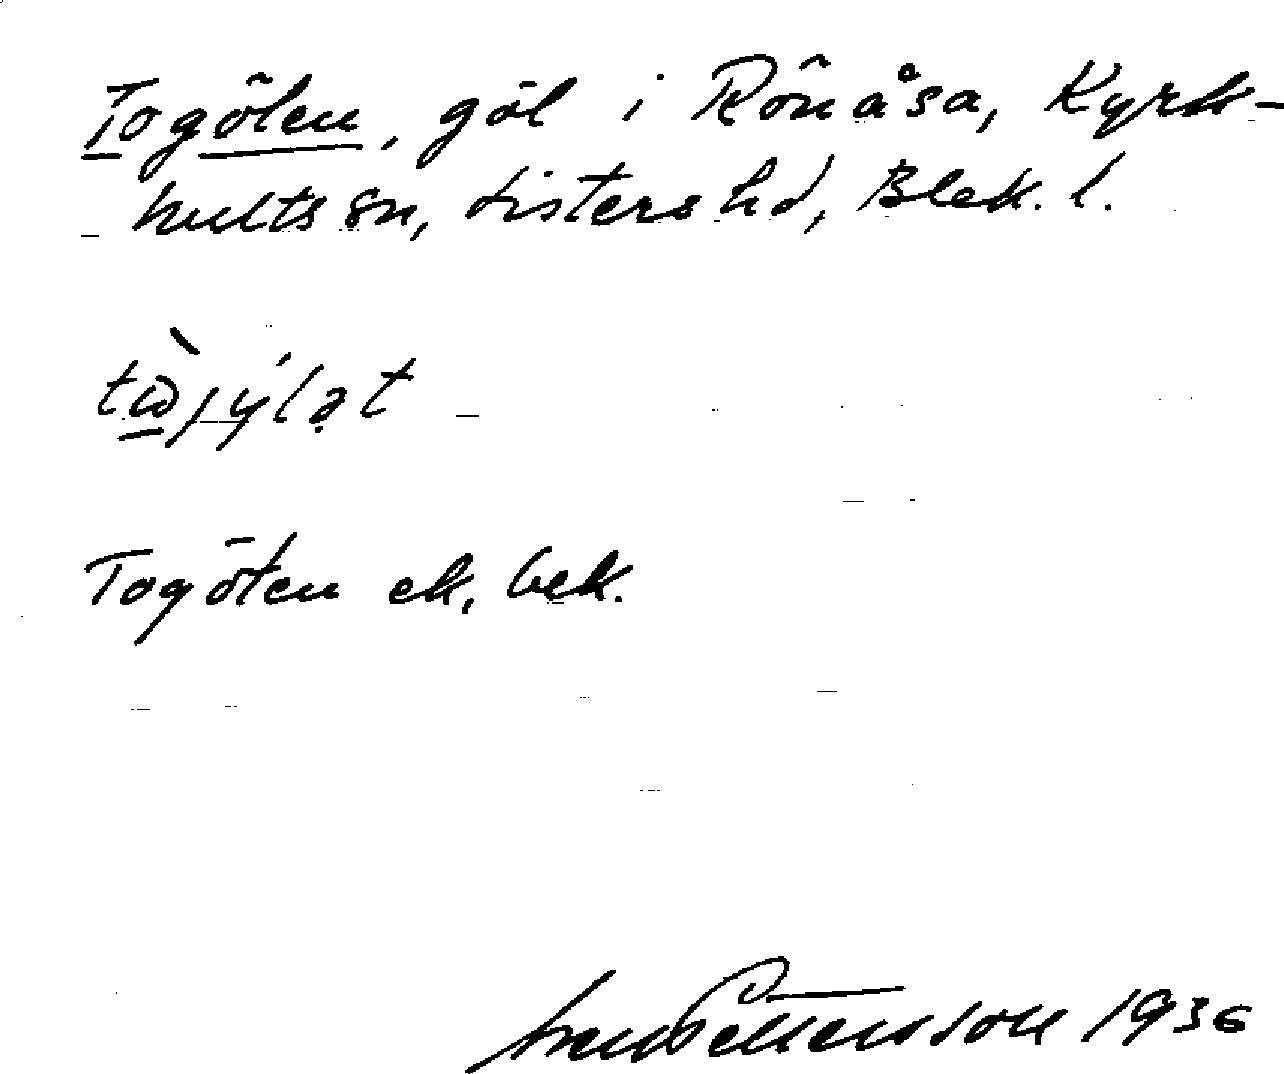 Togölen, göl i Rönåsa, Kyrk-
hults sn, Listers hd, Blek. l.
Togölen ek, bek.
Pettersson 1936